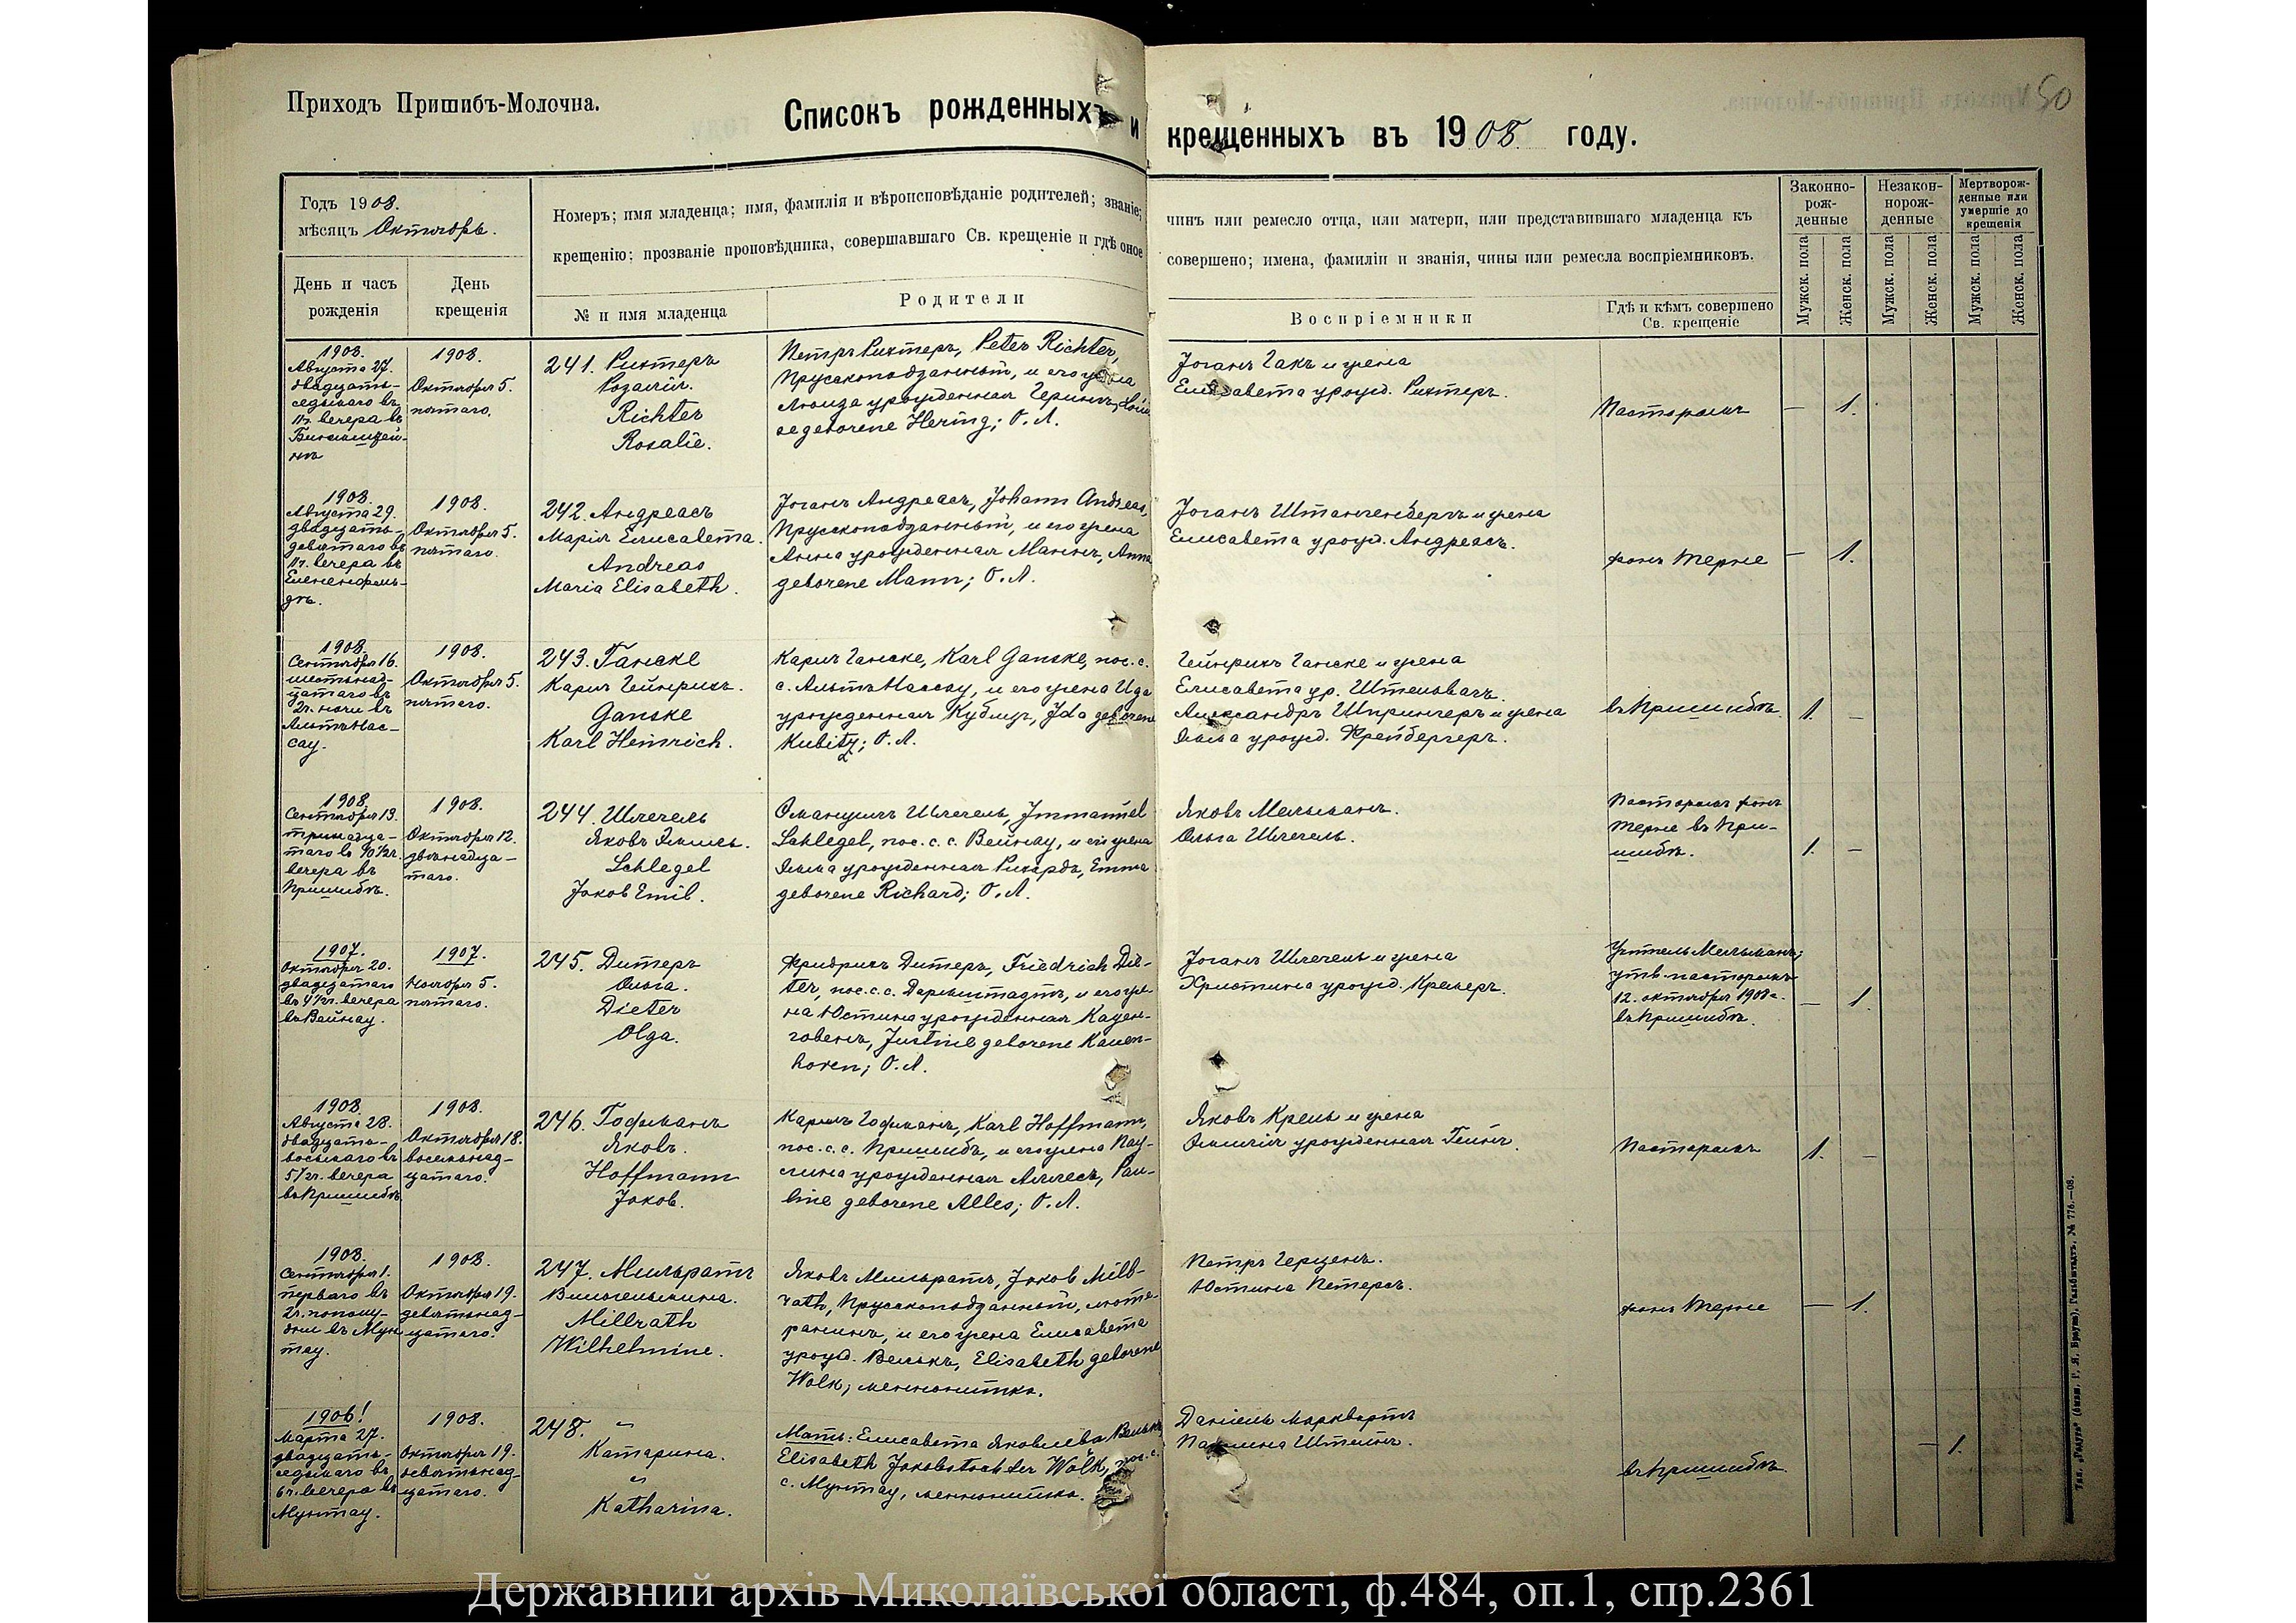 Приходъ Пришибъ-Молочна.
50
Списокъ рожденныхъ и крещенныхъ въ 1908 году.
Годъ 1908.
мѣсяцъ Октябрь.
День и часъ рожденія
День крещенія
Номеръ; имя младенца; имя, фамилія и вѣроисповѣданіе родителей; званіе; чинъ или ремесло отца, или матери, или представившаго младенца къ
крещенію; прозваніе проповѣдника, совершавшаго Св. крещеніе и гдѣ оное совершено; имена, фамиліи и званія, чины или ремесла воспріемниковъ.
№ и имя младенца
Родители
Воспріемники
Гдѣ и кѣмъ совершено
Св. крещеніе
Законно-
рож-
денные
Незакон-
норож-
денные
Мертворож-
денные или
умершіе до
крещенія
Мужск. пола
Женск. пола
Мужск. пола
Женск. пола
Мужск. пола
Женск. пола
1908.
Августа 27.
двадцать-
седьмаго въ
11ч. вечера въ
1908.
Октября 5.
пятаго.
241. Рихтеръ
Розалія.
Richter
Rosalie.
Петръ Рихтеръ, Peter Richter,
Прусскоподданный, и его жена
Луиза урожденная Герингъ, Loui
se geborene Hering; О. Л.
Іоганъ Гакъ и жена
Елизавета урожд. Рихтеръ.
Пасторомъ
— 1.
1908.
Августа 29.
двадцать-
девятаго въ
11ч. вечера въ
Елененфель-
дѣ.
1908.
Октября 5.
пятаго.
242. Андреасъ
Марія Елисавета.
Andreas
Maria Elisabeth.
Іоганъ Андреасъ, Johann Andreas,
Прусскоподданный, и его жена
Анна урожденная Маннъ, Anna
geborene Mann; О. Л.
Іоганъ Штангенбергъ и жена
Елисавета урожд. Андреасъ.
фонъ Терне
— 1.
1908.
Сентября 16.
шестнад-
цатаго въ
2ч. ночи въ
Альтъ Нас-
сау.
1908.
Октября 5.
пятаго.
243. Ганске
Карлъ Гейнрихъ.
Ganske
Karl Heinrich.
Карлъ Ганске, Karl Ganske, пос. с.
с. Альтъ Нассау, и его жена Ида
урожденная Кубицъ, Ida geborene
Kubitz; О. Л.
Гейнрихъ Ганске и жена
Елисавета ур. Штельвагъ.
Александръ Шпрингеръ и жена
Эмма урожд. Фрейбергеръ.
въ Пришибѣ.
1. —
1908.
Сентября 13.
тринадца-
таго въ 10½ч.
вечера въ
Пришибѣ.
1908.
Октября 12.
двѣнадца-
таго.
244. Шлегель
Яковъ Эмиль.
Schlegel
Jakob Emil.
Эмануилъ Шлегель, Immanuel
Schlegel, пос. с. с. Вейнау, и его жена
Эмма урожденная Рихардъ, Emma
geborene Richard; О. Л.
Яковъ Мельманъ.
Ольга Шлегель.
Пасторомъ фонъ
Терне въ При-
шибѣ.
1. —
1907.
Октября 20.
двадцатаго
въ 4½ч. вечера
въ Вейнау.
1907.
Ноября 5.
пятаго.
245. Дитеръ
Ольга.
Dieter
Olga.
Фридрихъ Дитеръ, Friedrich Die-
ter, пос. с. с. Дармштадтъ, и его же-
на Юстина урожденная Кауен-
говенъ, Justine geborene Kauen-
hoven; О. Л.
Іоганъ Шлегель и жена
Христина урожд. Кремеръ.
Учитель Мельманъ;
утв. пасторомъ
12. октября 1908 г.
въ Пришибѣ.
— 1.
1908.
Августа 28.
двадцать-
восьмаго въ
5½ч. вечера
въ Пришибѣ
1908.
Октября 18.
восемнад-
цатаго.
246. Гофманъ
Яковъ.
Hoffmann
Jakob.
Карлъ Гофманъ, Karl Hoffmann,
пос. с. с. Пришибъ, и его жена Пау-
лина урожденная Аллесъ, Pau-
line geborene Alles; О. Л.
Яковъ Крель и жена
Эмилія урожденная Гейнъ.
Пасторомъ
1. —
1908.
Сентября 1.
перваго въ
2ч. пополу-
дни въ Мун
тау.
1908.
Октября 19.
девятнад-
цатаго.
247. Мильратъ
Вильгельмина.
Millrath
Wilhelmine.
Яковъ Мильратъ, Jakob Mill-
rath, Прусскоподданный, люте-
ранинъ, и его жена Елисавета
урожд. Велькъ, Elisabeth geborene
Wölk; меннонитка.
Петръ Герценъ.
Юстина Петерсъ.
фонъ Терне
— 1.
1906!
Марта 27.
двадцать-
седьмаго въ
6ч. вечера въ
Мунтау.
1908.
Октября 19.
девятнад-
цатаго.
248. "
Катарина.
"
Katharina.
Мать: Елисавета Яковлева Велькъ,
Elisabeth Jakobstochter Wölk, пос. с.
с. Мунтау, меннонитка.
Даніель Марквартъ
Паулина Штейнъ.
въ Пришибѣ.
— 1.
Тип. „Радуга“ (бывш. Г. Я. Брауна), Гальбштадтъ. № 776.—08.
Державний архів Миколаївської області, ф.484, оп.1, спр.2361